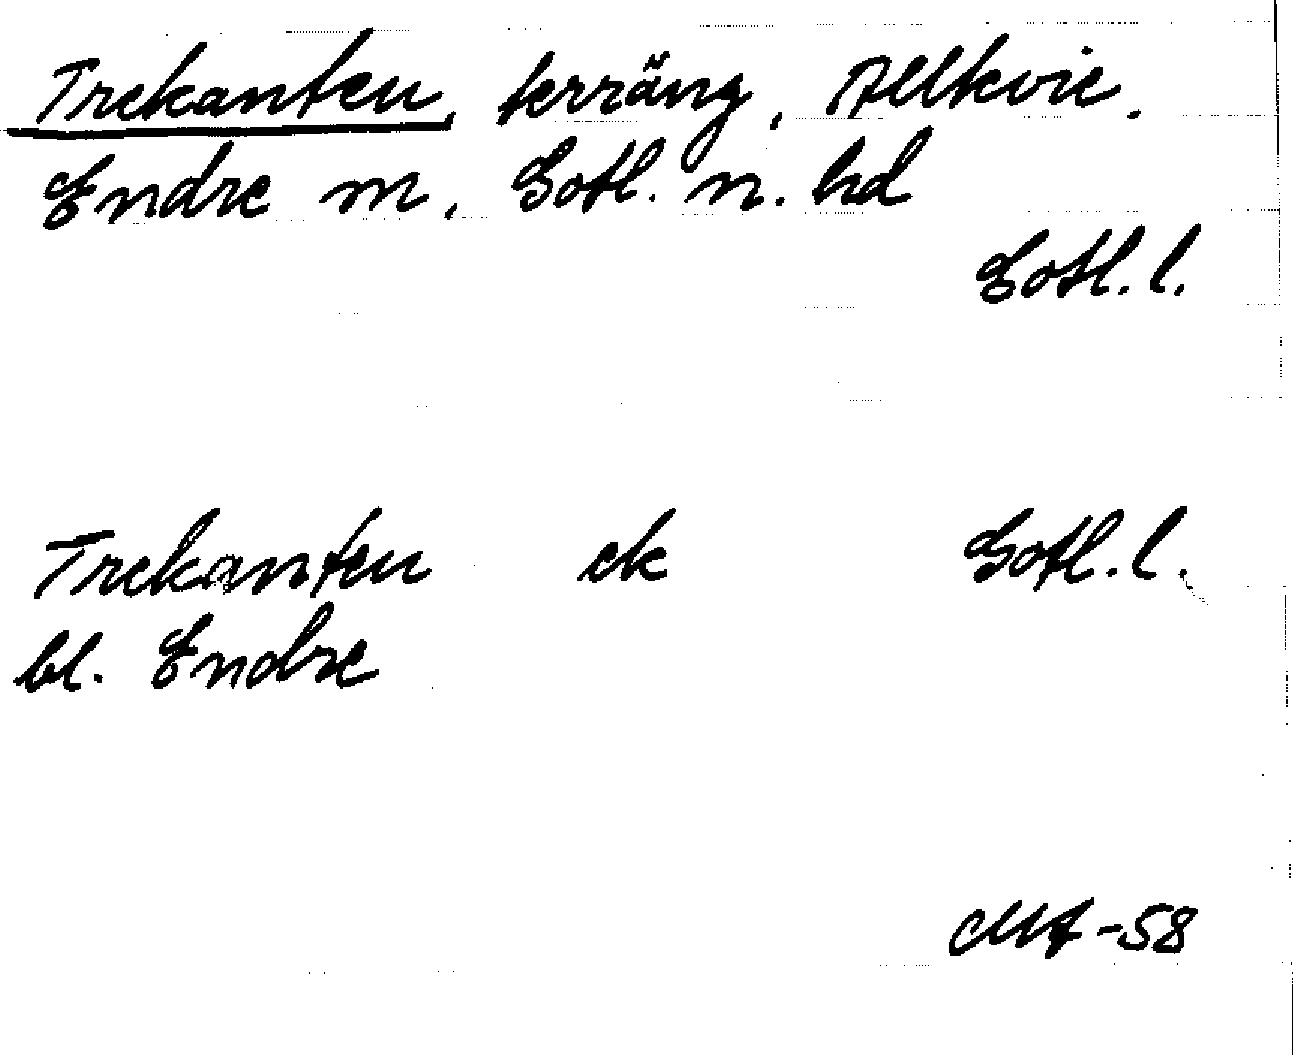 Trekanten, terräng, Allkvie.
Endre sn, Gotl. n. hd
Gotl. l.
Trekanten ek Gotl. l.
bl. Endre
-58